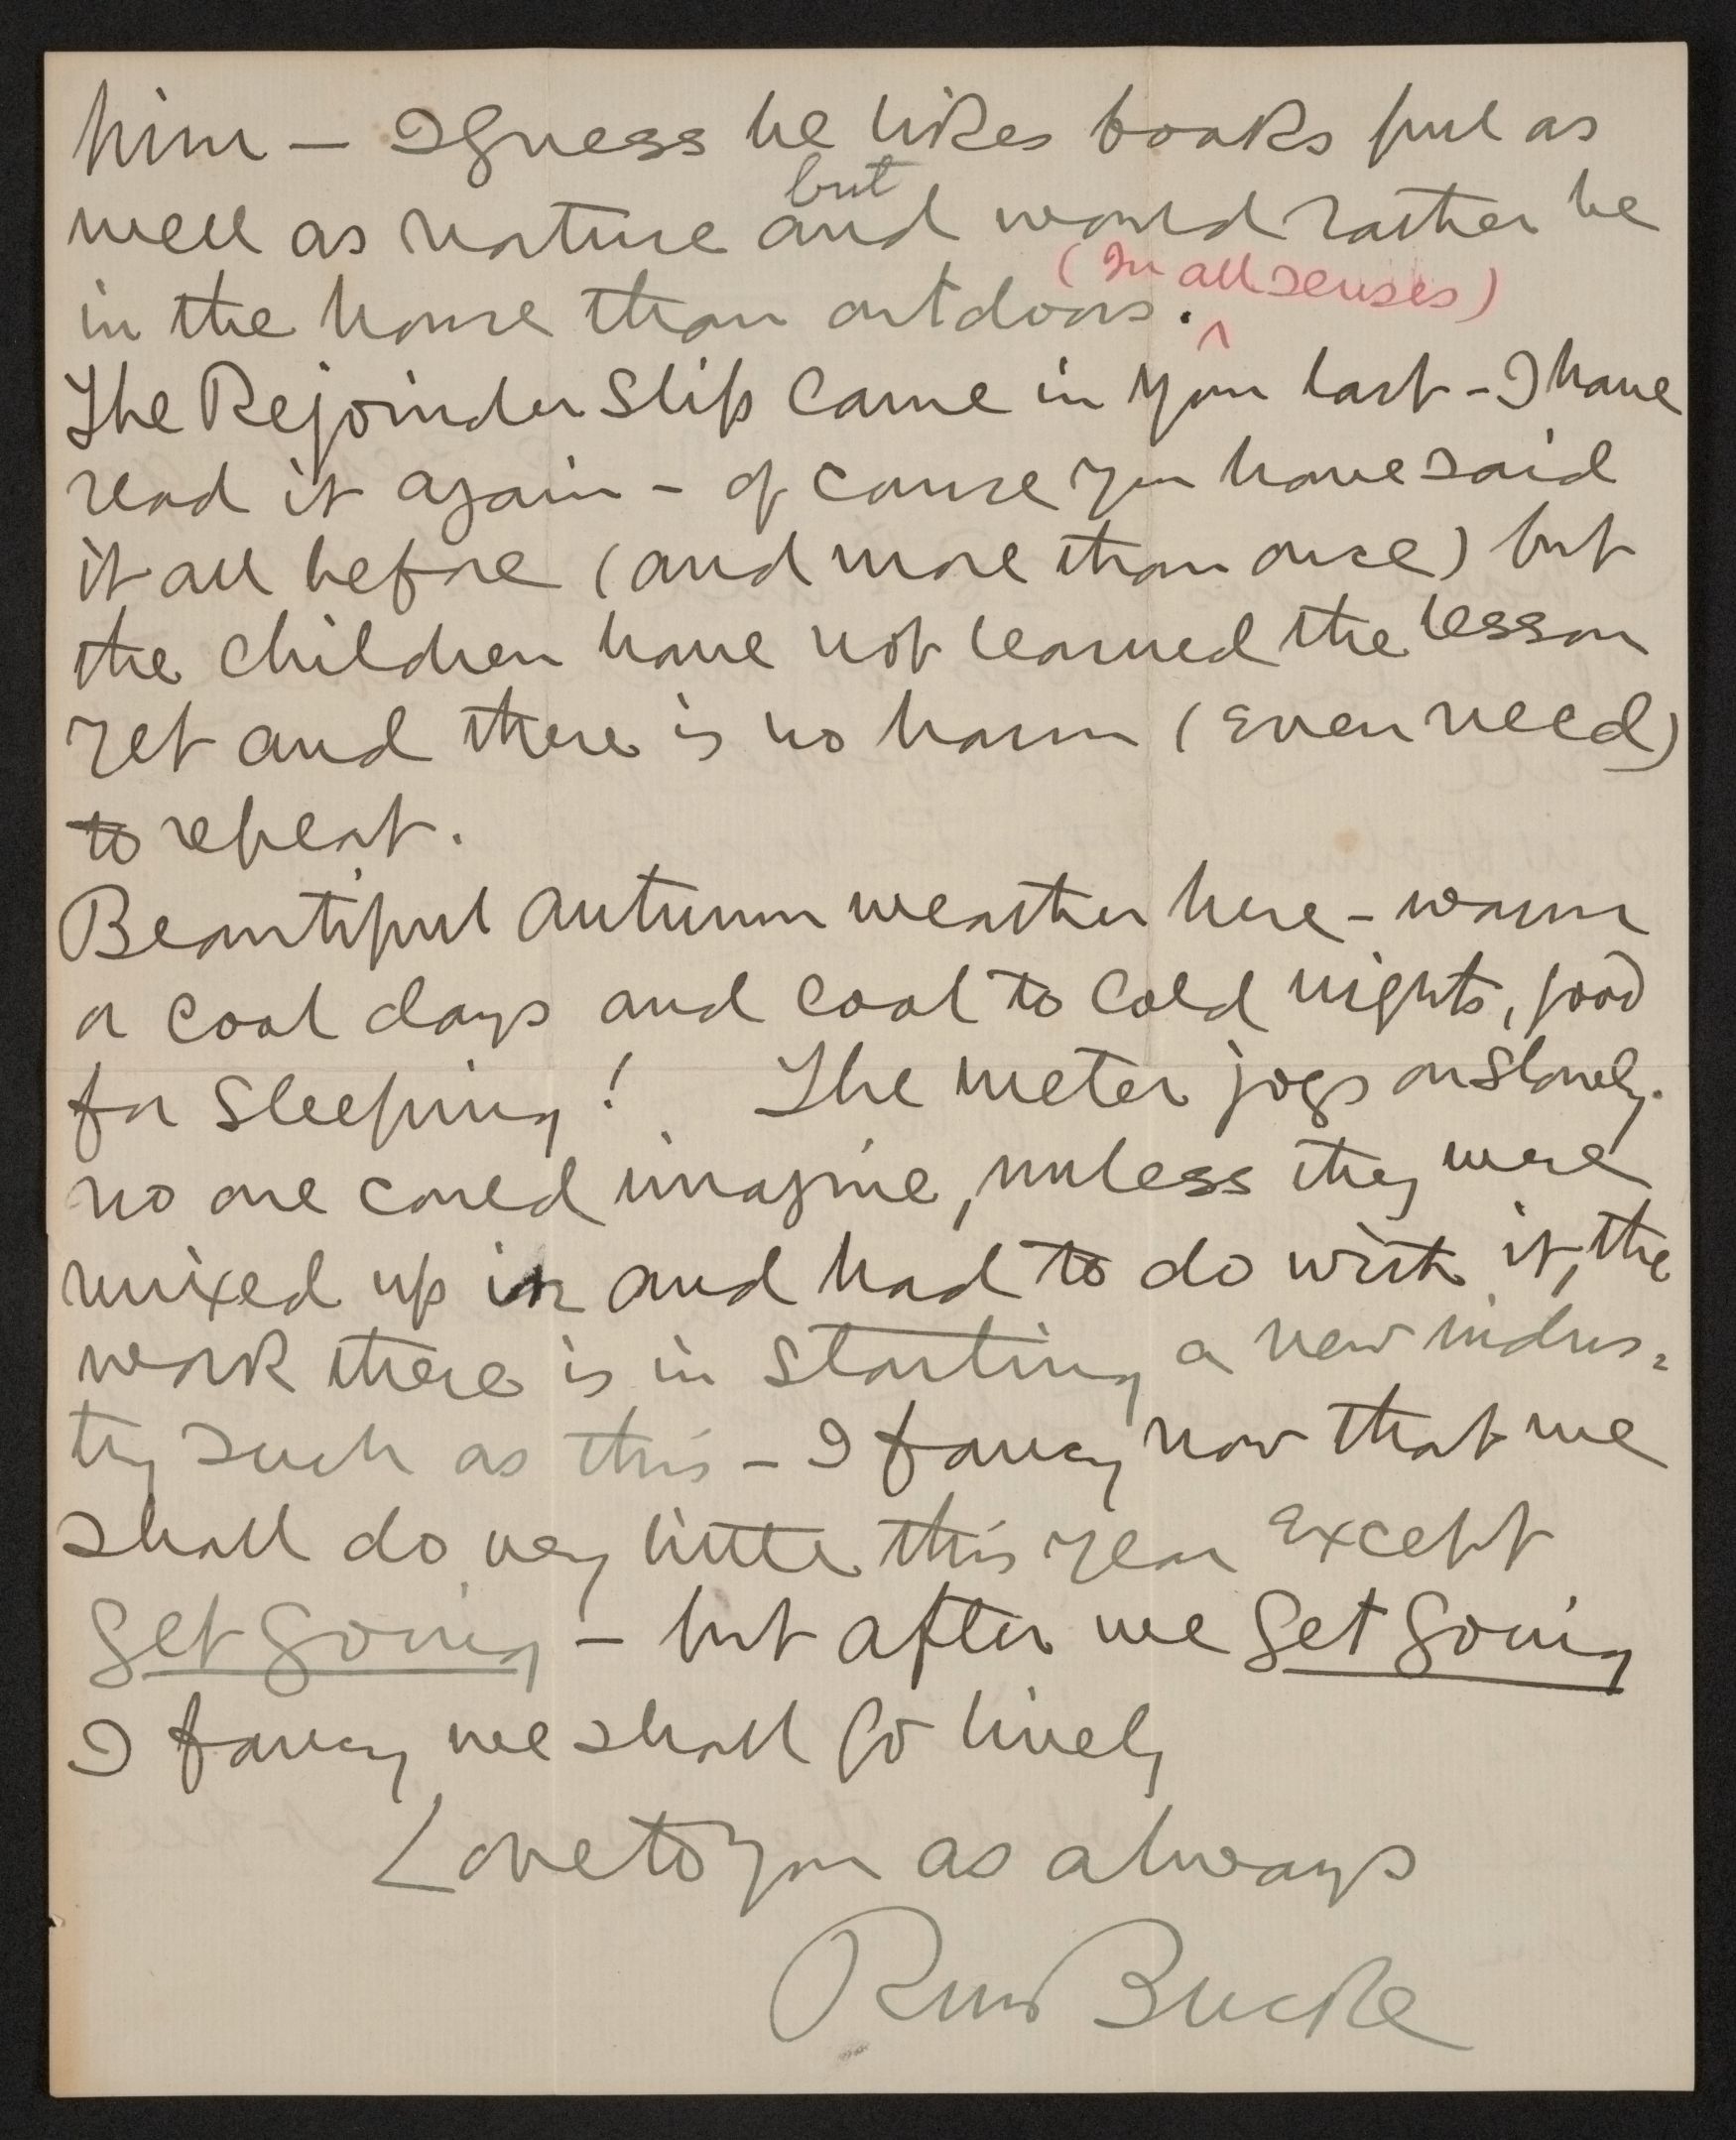 him — I guess he likes books full as
but
well as nature and would rather be
(In all senses)
in the house than outdoors. ^
The Rejoinder slip came in your last - I have
read it again - of course you have said
it all before (and more than once) but
the children have not learned the lesson
yet and there is no harm (even need)
to repeat.
Beautiful autumn weather here - warm
a cool days and cool to cold nights, good
for sleeping! The meter jogs on slowly.
no one could imagine, unless they were
mixed up in and had to do with it, the
work there is in starting a new indus-
try such as this - I fancy now that we
shall do very little this year except
get going - but after we get going
I fancy we shall go lively
Love to you as always
RM Bucke